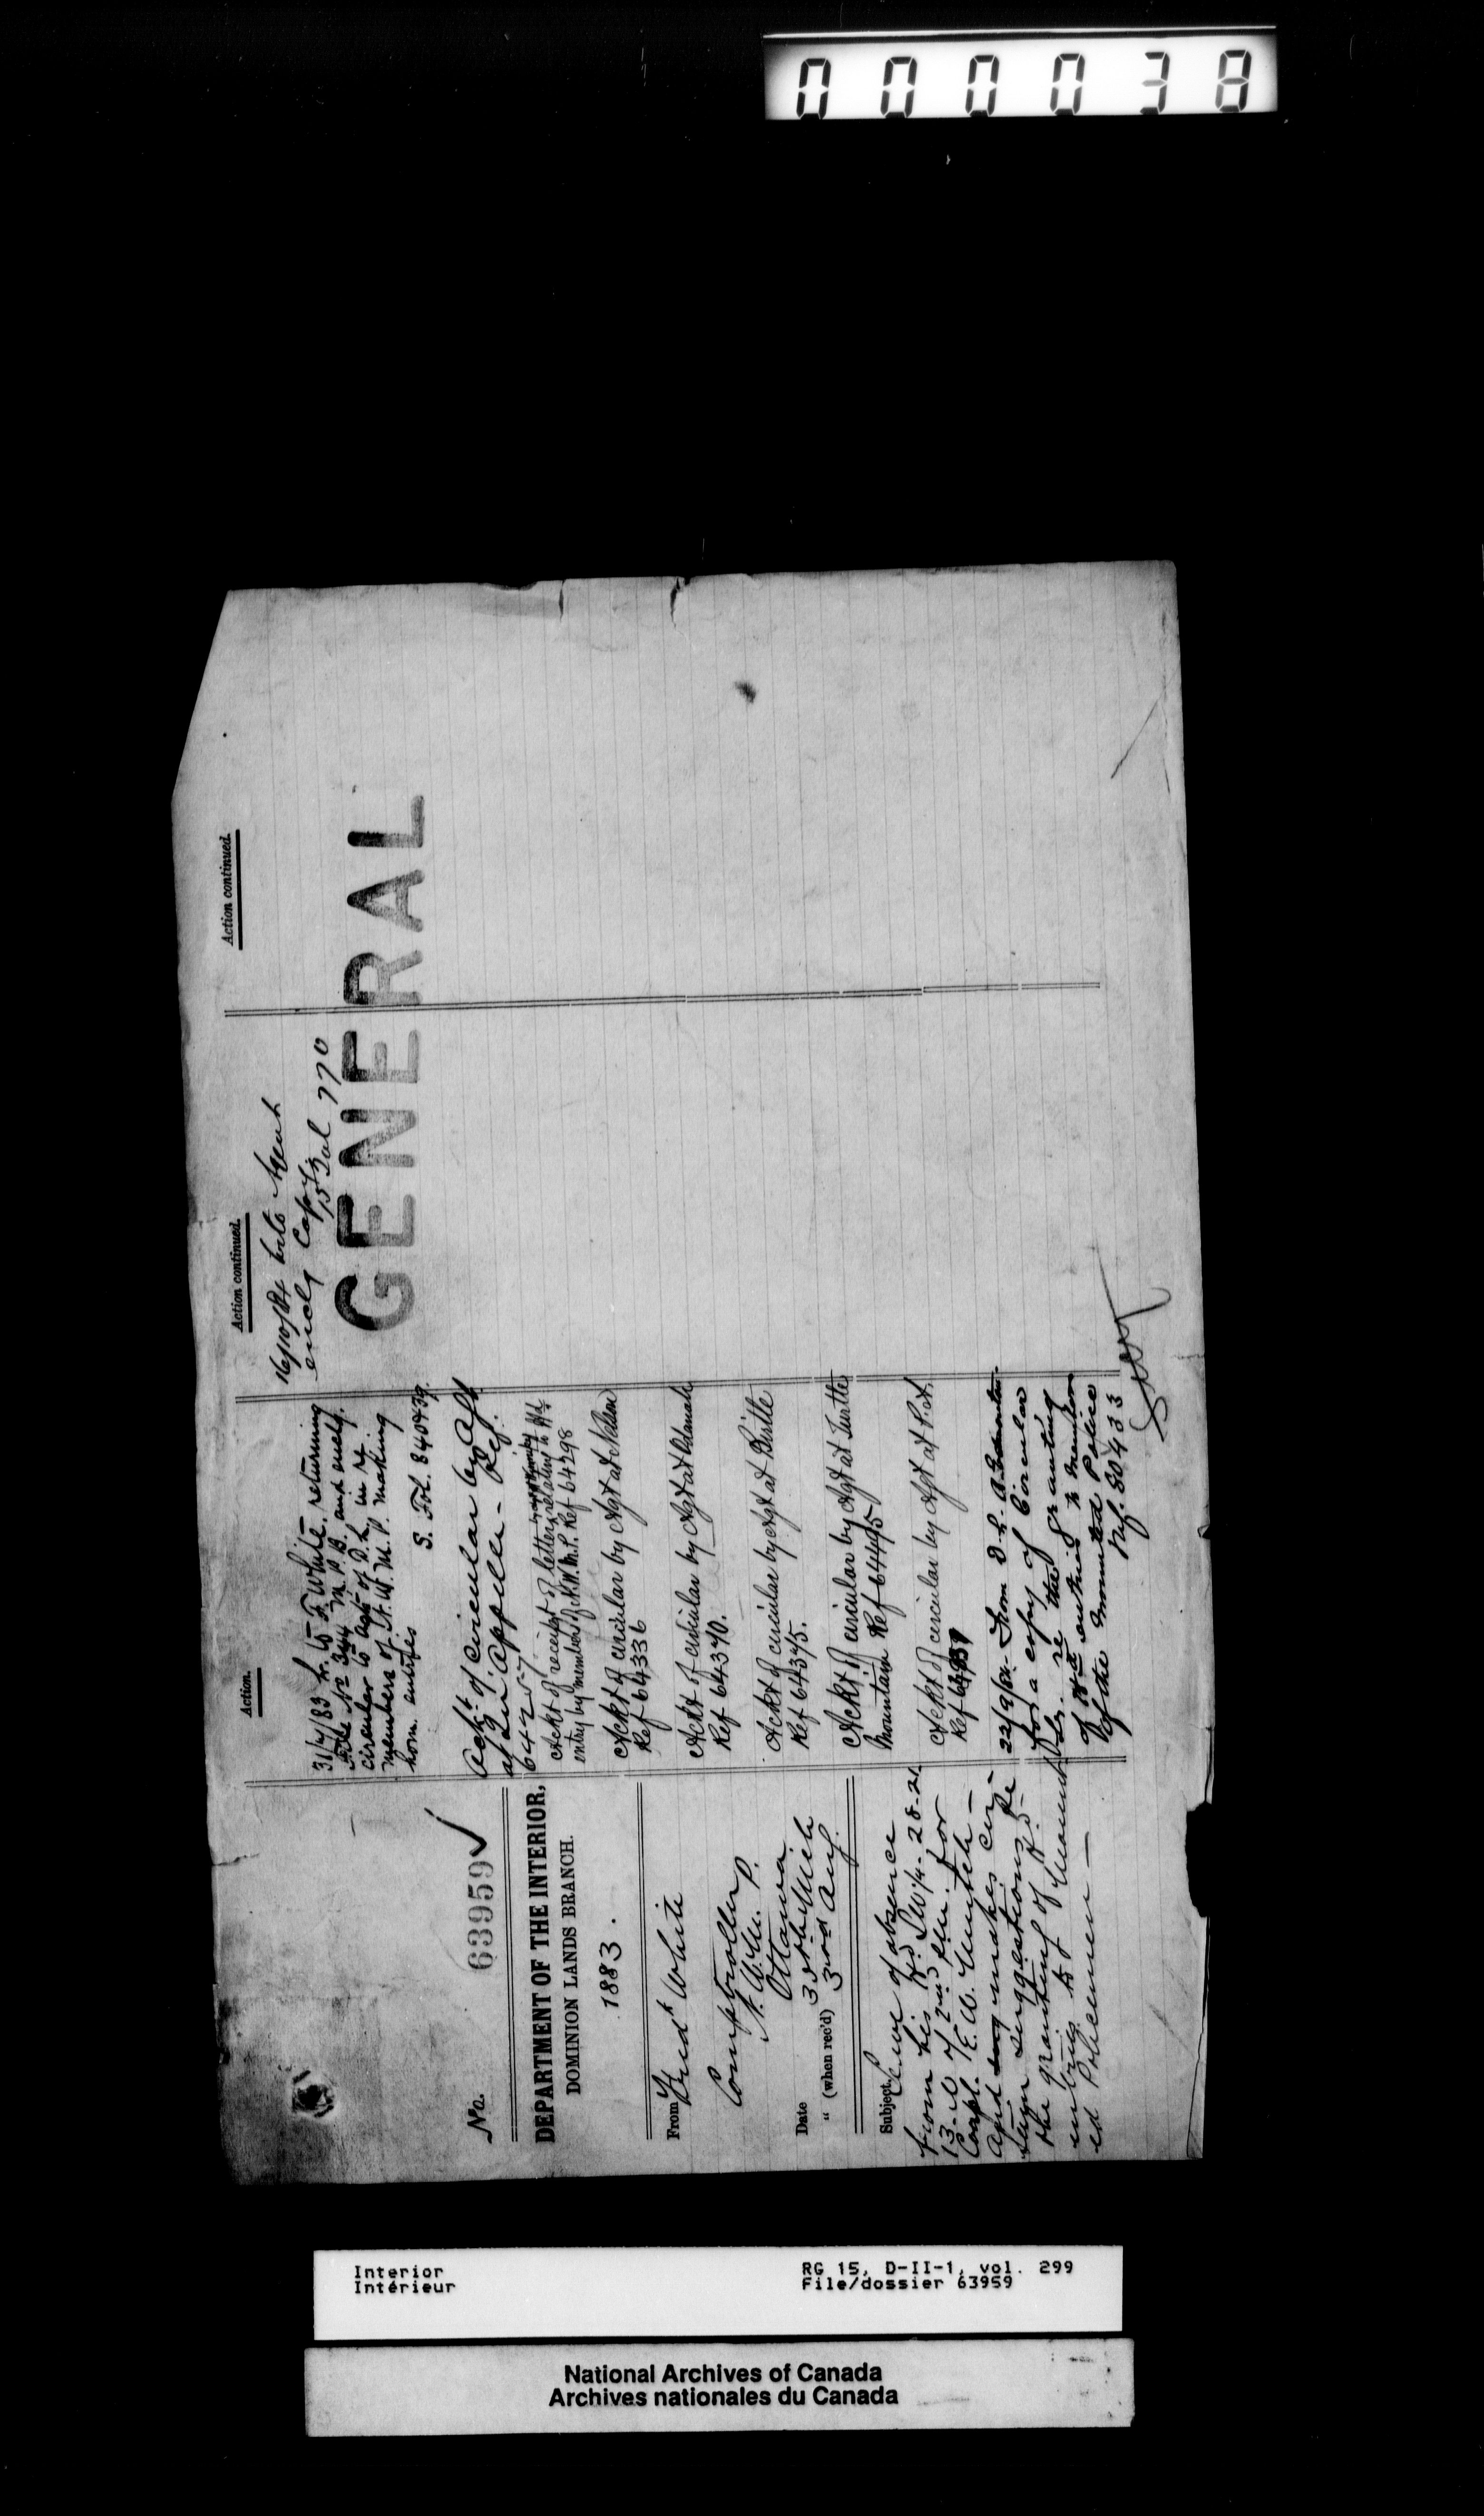 000038
No. 63959 ✓
DEPARTMENT OF THE INTERIOR,
DOMINION LANDS BRANCH.
1883.
From Fredk White
Comptroller
N.W.M.P.
Ottawa
Date
" (when rec'd) 3rd Aug.
Subject, Leave of absence
from his Hd. SW¼-28-21
13-W of 2nd Mer. for
Corpl. E.W.
And makes cer-
tain suggestions re
the granting of Hd-
entries to Mount-
ed Policemen—
Action.
31/7/83 L. to F White returning
File No 344 M.P.B. and encls.
circular to agts of D.L. in re
members of N.W.M.P. making
hom. entries
S. Fol. 840439.
Ackt. of circular by Agt
at Qu'Appelle - Ref:
64257.
Ackt of receipt of letter relating to Hd
entry by members of N.W.M.P. Ref 64298
Ackt of circular by Agt at Nelson
Ref 64336
Ackt of circular by Agt at Odanah
Ref 64340.
Ackt of circular by Agt at Birtle
Ref 64345.
Ackt of circular by Agt at Turtle
Mountain Ref 64495
Ackt of circular by Agt at P.A.
Ref
22/9/84 - From D.L. A.
for a copy of Circular
re the granting
of Hd entries to members
of the Mounted Police
Ref. 80433
Action continued.
16/10/84 L to Agent
encls Copy
Fol 770
GENERAL
Action continued.
Interior
Intérieur
RG 15, D-II-1, vol. 299
File/dossier 63959
National Archives of Canada
Archives nationales du Canada